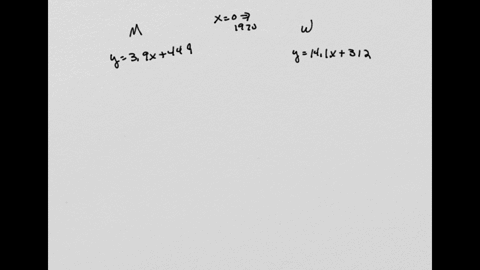 x=0 ⇒
1970
M
W
y=3.9x+449
y=14.1x+312